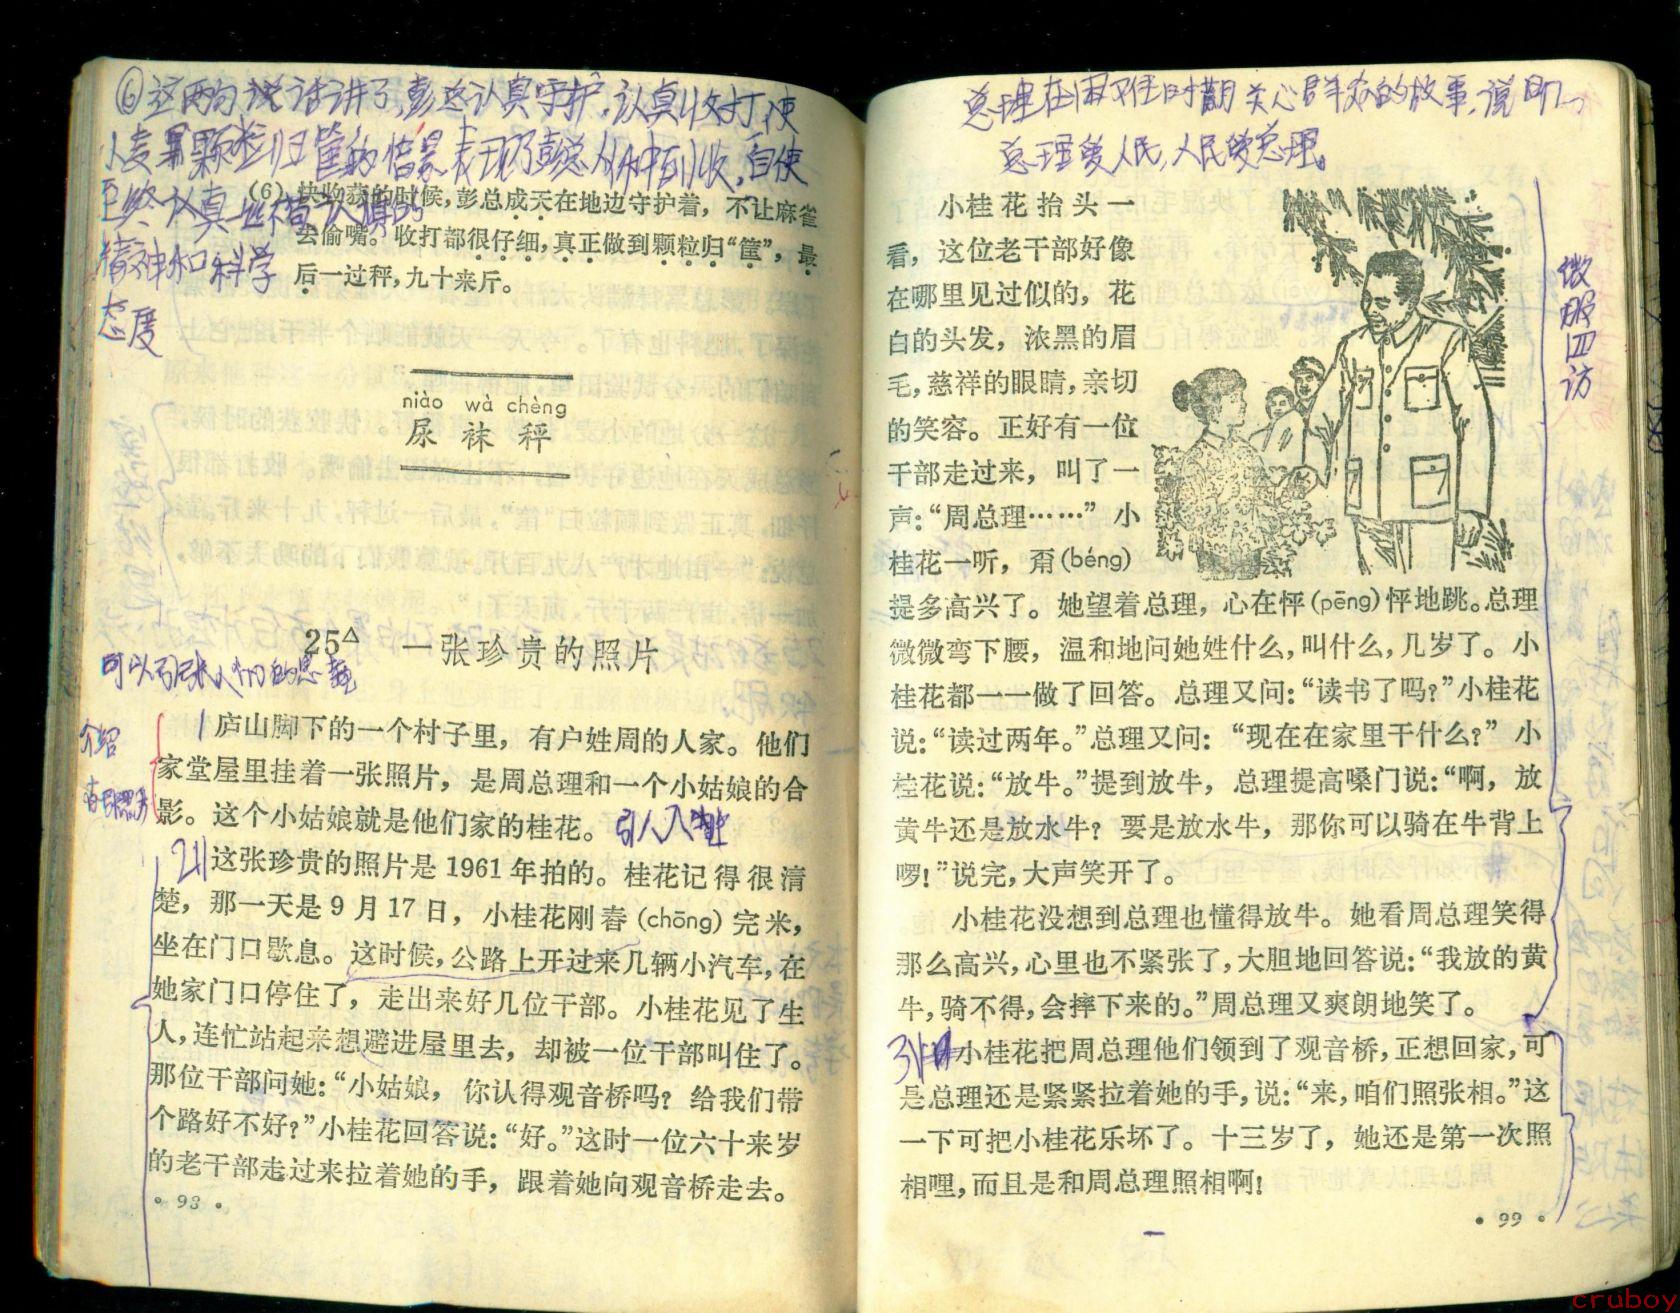 ⑥这两句说话讲了,彭总认真守护,认真收打,使
小麦颗粒归筐的情景表现了彭总从种到收,自始
(6) 快收获的时候,彭总成天在地边守护着,不让麻雀
至终认真
去偷嘴。收打都很仔细,真正做到颗粒归“筐”,最
精神和科学
后一过秤,九十来斤。
态度
niào wà chèng
尿 袜 秤
25△ 一张珍贵的照片
可以引起人们的思
介绍
1 庐山脚下的一个村子里,有户姓周的人家。他们
家堂屋里挂着一张照片,是周总理和一个小姑娘的合
影。这个小姑娘就是他们家的桂花。 引人入胜
2 这张珍贵的照片是1961年拍的。桂花记得很清
楚,那一天是9月17日,小桂花刚舂(chōng)完米,
坐在门口歇息。这时候,公路上开过来几辆小汽车,在
她家门口停住了,走出来好几位干部。小桂花见了生
人,连忙站起来想避进屋里去,却被一位干部叫住了。
那位干部问她:“小姑娘,你认得观音桥吗?给我们带
个路好不好?”小桂花回答说:“好。”这时一位六十来岁
的老干部走过来拉着她的手,跟着她向观音桥走去。
• 93 •
总理在 时期关心群众的故事,说明
总理爱人民,人民爱总理。
小桂花抬头一
看,这位老干部好像
在哪里见过似的,花
白的头发,浓黑的眉
毛,慈祥的眼睛,亲切
的笑容。正好有一位
干部走过来,叫了一
声:“周总理……”小
桂花一听,甭(béng)
提多高兴了。她望着总理,心在怦(pēng)怦地跳。总理
微微弯下腰,温和地问她姓什么,叫什么,几岁了。小
桂花都一一做了回答。总理又问:“读书了吗?”小桂花
说:“读过两年。”总理又问:“现在在家里干什么?”小
桂花说:“放牛。”提到放牛,总理提高嗓门说:“啊,放
黄牛还是放水牛?要是放水牛,那你可以骑在牛背上
啰!”说完,大声笑开了。
小桂花没想到总理也懂得放牛。她看周总理笑得
那么高兴,心里也不紧张了,大胆地回答说:“我放的黄
牛,骑不得,会摔下来的。”周总理又爽朗地笑了。
3 小桂花把周总理他们领到了观音桥,正想回家,可
是总理还是紧紧拉着她的手,说:“来,咱们照张相。”这
一下可把小桂花乐坏了。十三岁了,她还是第一次照
相哩,而且是和周总理照相啊!
• 99 •
微服四访
cruboy